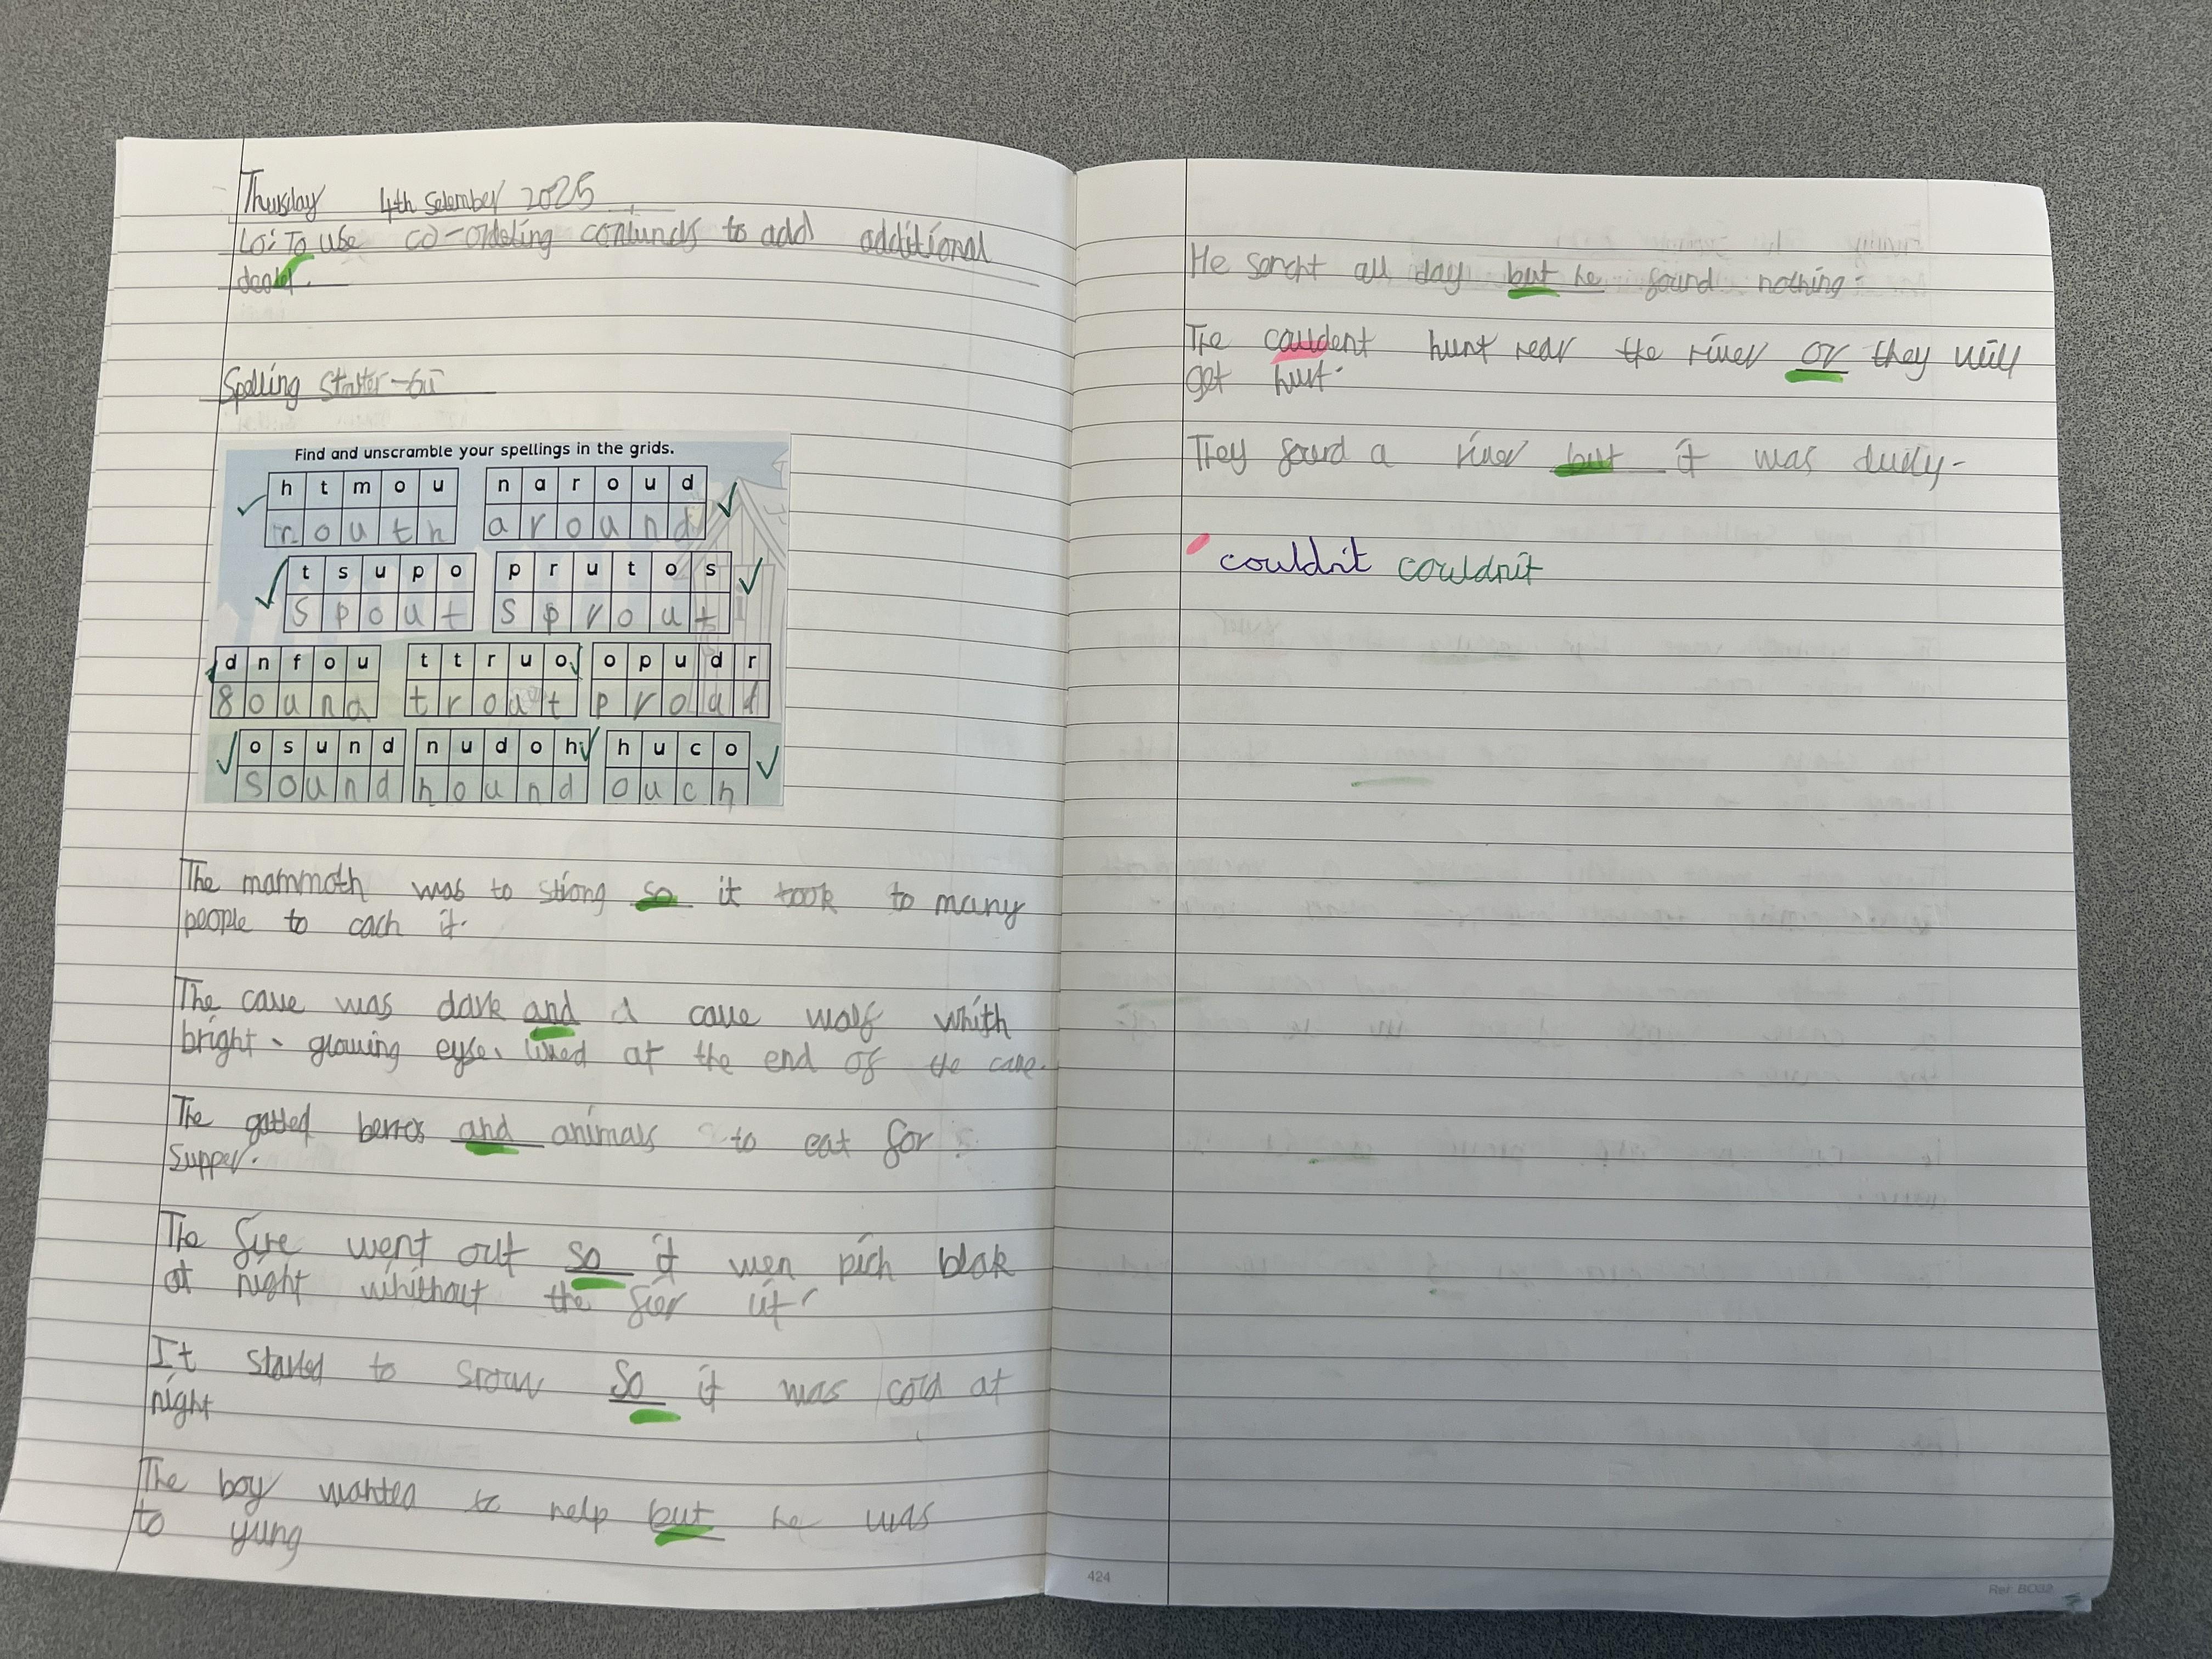 Thursday 4th Setember 2025
Lo: To use co-ordeting contuncts to add additional
Spelling Starter - ou
Find and unscramble your spellings in the grids.
h t m o u n a r o u d
m o u t h a r o u n d
t s u p o p r u t o s
s p o u t s p r o u t
d n f o u t t r u o o p u d r
f o u n d t r o u t p r o u d
o s u n d n u d o h h u c o
s o u n d h o u n d o u c h
The mammoth was to strong so it took to many
people to cach it.
The cave was dark and a cave wolf whith
bright, glowing eyse, lived at the end of the cave.
The gatted berres and animals to eat for
supper.
The fire went out so it wen pich blak
at night whithout the fier lit
It started to snow so it was cold at
night
The boy wanted to help but he was
to yung
He sercht all day but he found nothing.
The couldent hunt near the river or they will
get hurt.
They found a river but it was
couldn't couldn't
424
Ref: BO32